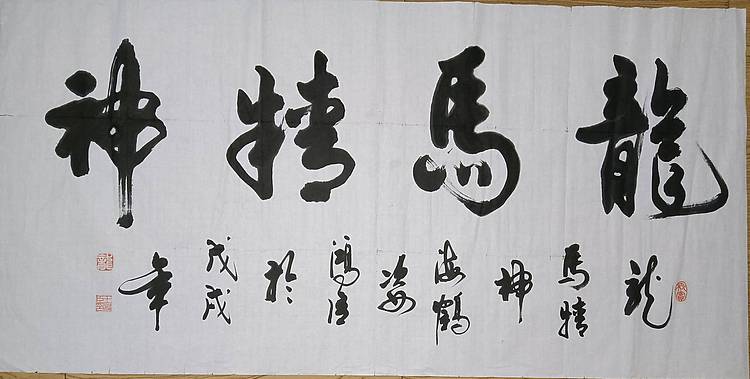 龍馬精神
龍
馬精
神
海鶴
姿
鴻
於
戊戌
年